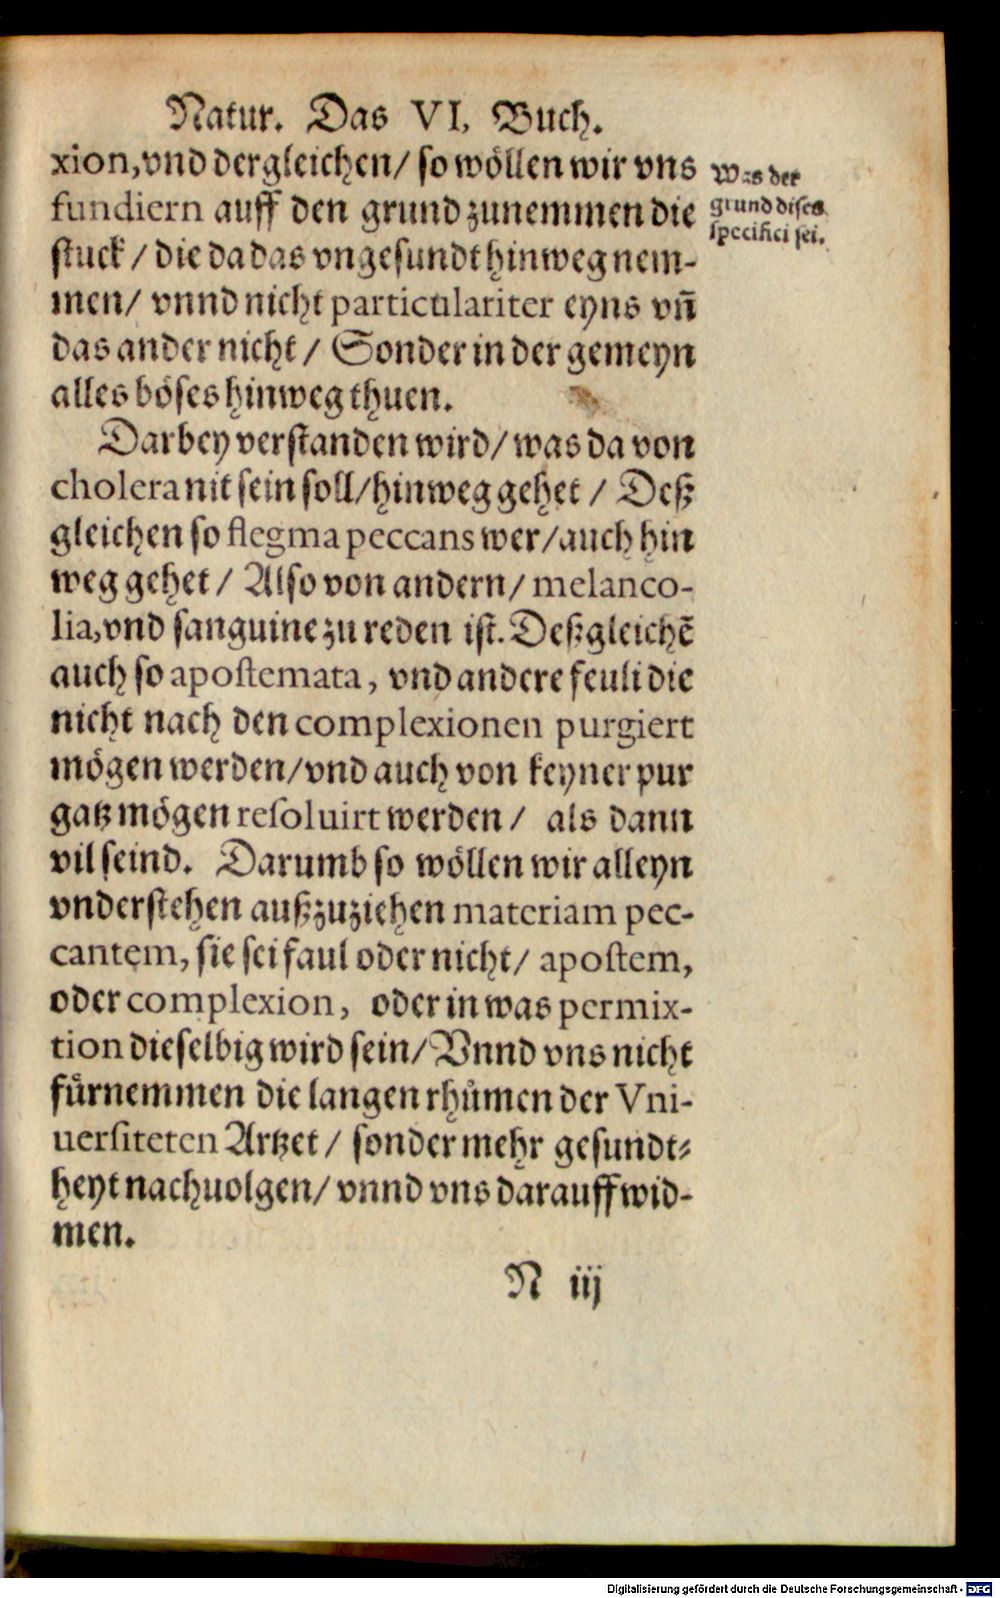 Natur. Das VI. Buch.
xion, vnd dergleichen/ so wöllen wir vns
fundiern auff den grund zunemmen die
stuck / die da das vngesundt hinweg nem-
men/ vnnd nicht particulariter eyns vñ
das ander nicht / Sonder in der gemeyn
alles böses hinweg thuen.
Was der
grund dises
specifici sei.
Darbey verstanden wird/ was da von
cholera nit sein soll/ hinweg gehet / Deß
gleichen so flegma peccans wer/ auch hin
weg gehet / Also von andern / melanco-
lia, vnd sanguine zu reden ist. Deßgleichẽ
auch so apostemata, vnd andere feuli die
nicht nach den complexionen purgiert
mögen werden/ vnd auch von keyner pur
gatz mögen resoluirt werden / als dann
vil seind. Darumb so wöllen wir alleyn
vnderstehen außzuziehen materiam pec-
cantem, sie sei faul oder nicht/ apostem,
oder complexion, oder in was permix-
tion dieselbig wird sein/ Vnnd vns nicht
fürnemmen die langen rhůmen der Vni-
uersiteten Artzet / sonder mehr gesundt-
heyt nachuolgen/ vnnd vns darauff wid-
men.
N iij
Digitalisierung gefördert durch die Deutsche Forschungsgemeinschaft - DFG